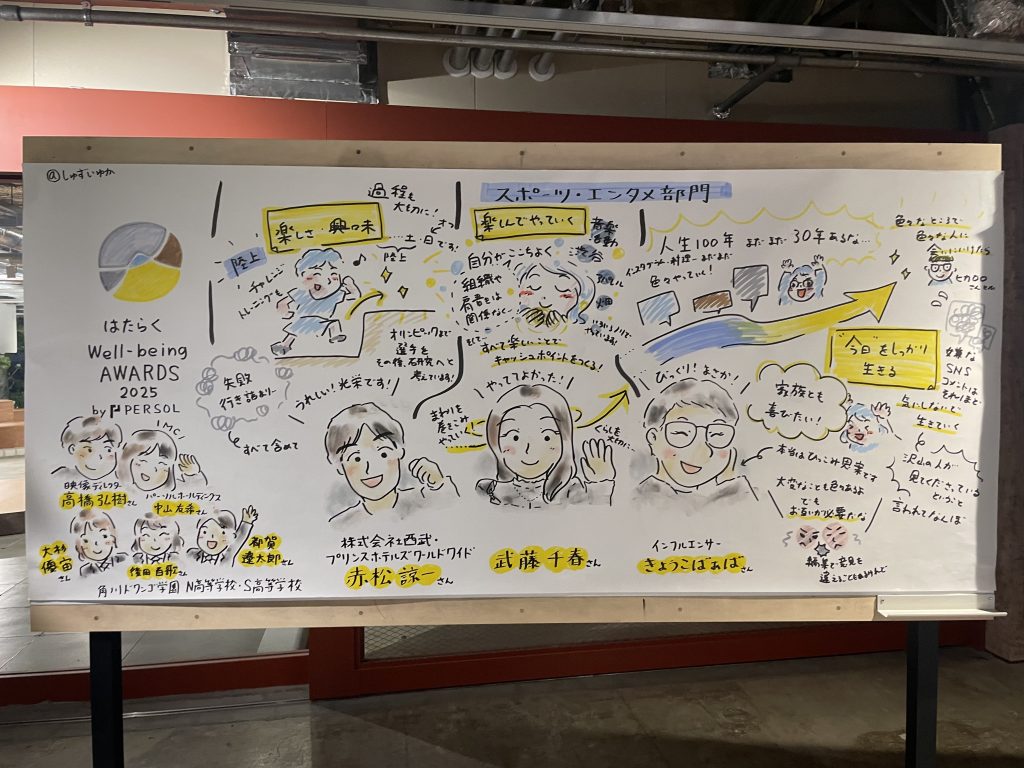 @しゅすいゆか
はたらく
Well-being
AWARDS
2025
by PERSOL
I MC!
映像ディレクター
高橋弘樹さん
パーソルホールディングス
中山友希さん
大杉
優宙
さん
後田百歌さん
都賀
遼太郎さん
角川ドワンゴ学園 N高等学校・S高等学校
スポーツ・エンタメ部門
過程も
大切に!
楽しさ・興味
土・日です!
陸上
陸上
チャレンジ
トレーニングも
失敗
行き詰まり…
すべて含めて
オリンピックまで
選手を
その後、研究へと
考えています!
うれしい!光栄です!
株式会社西武・
プリンスホテルズワールドワイド
赤松 諒一さん
楽しんでやっていく
音楽
活動
自分がここちよく
組織や
肩書とは
関係なく…
畑
すべて楽しいことで
キャッシュポイントをつくる!
やっててよかった!
まわりを
巻きこみ
やっていく!
くらしも
大切に…
武藤 千春さん
人生100年 まだまだ 30年あるな…
インスタグラマー・料理…まだまだ
色々やっていく!
びっくり!まさか!
家族とも
喜びたい!
インフルエンサー
きょうこばぁばさん
色々なところで
色々な人に
ヒカロロ
さんとか
"今日"をしっかり
生きる
嫌な
SNS
コメントは
それほど
気にしないで
生きていく
沢山の人が
見てくださっている
というかと
言われてなんぼ
本当はひっこみ思案です
大変なことも色々あるよ
でも
お互いが必要だな
編集で意見を
違えることもあるけんど